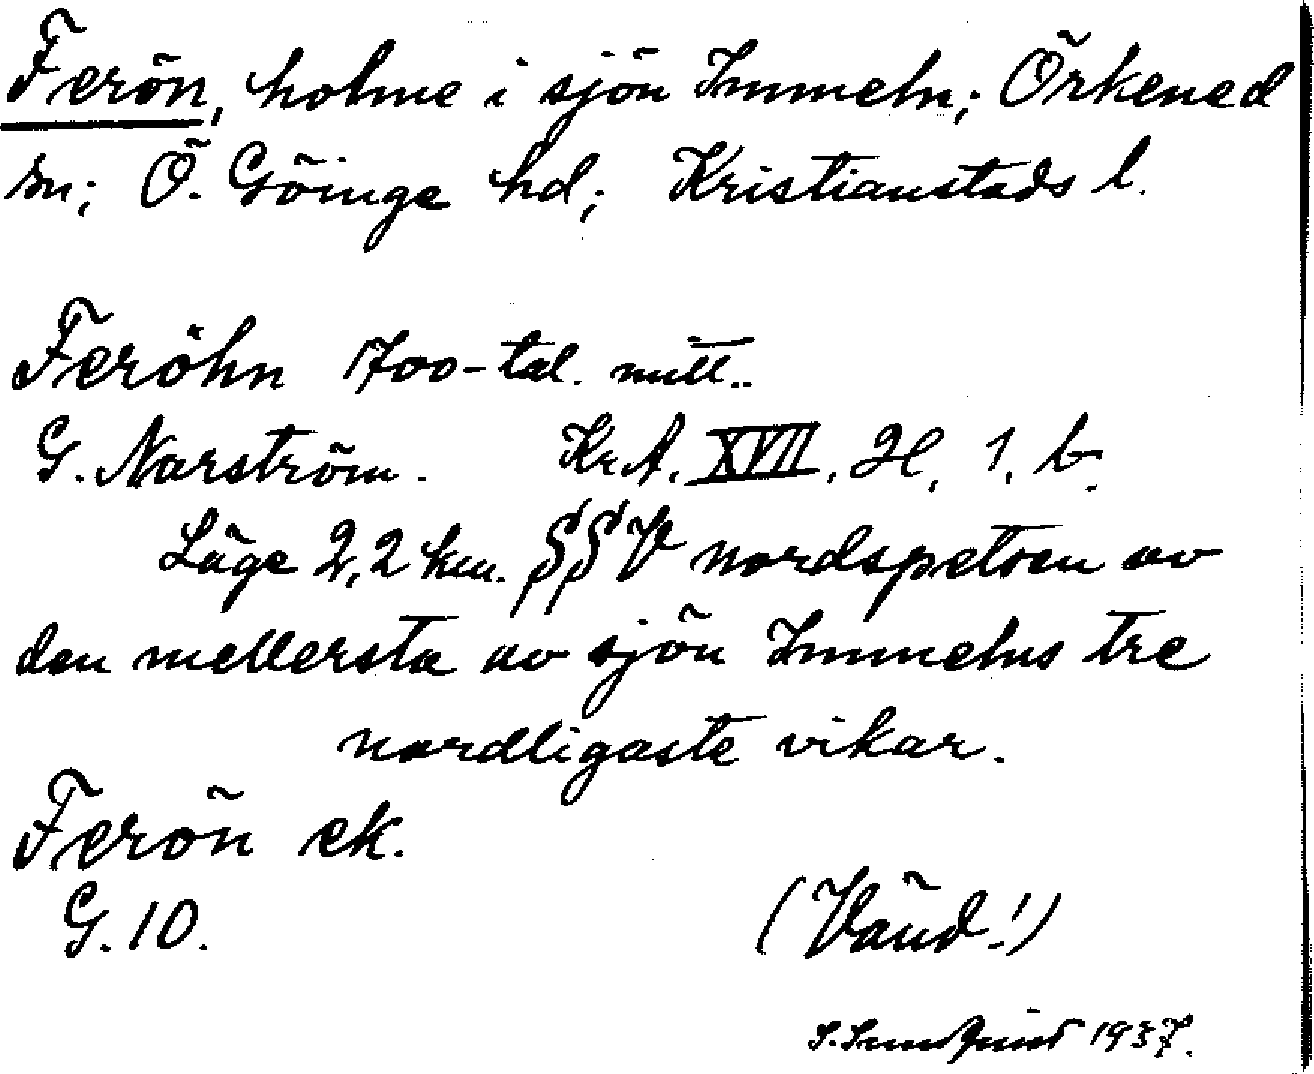 Ferön, holme i sjön Immeln; Örkened
sn; Ö. Göinge hd; Kristianstads l.
Feröhn 1700-tal. mitt..
G. Narström. Kr.A. XVII, H, 1, b.
Läge 2,2 km. SSV nordspetsen av
den mellersta av sjön Immelns tre
nordligaste vikar.
Ferön ek.
G. 10.
(Vänd!)
S. Sundquist 1937.